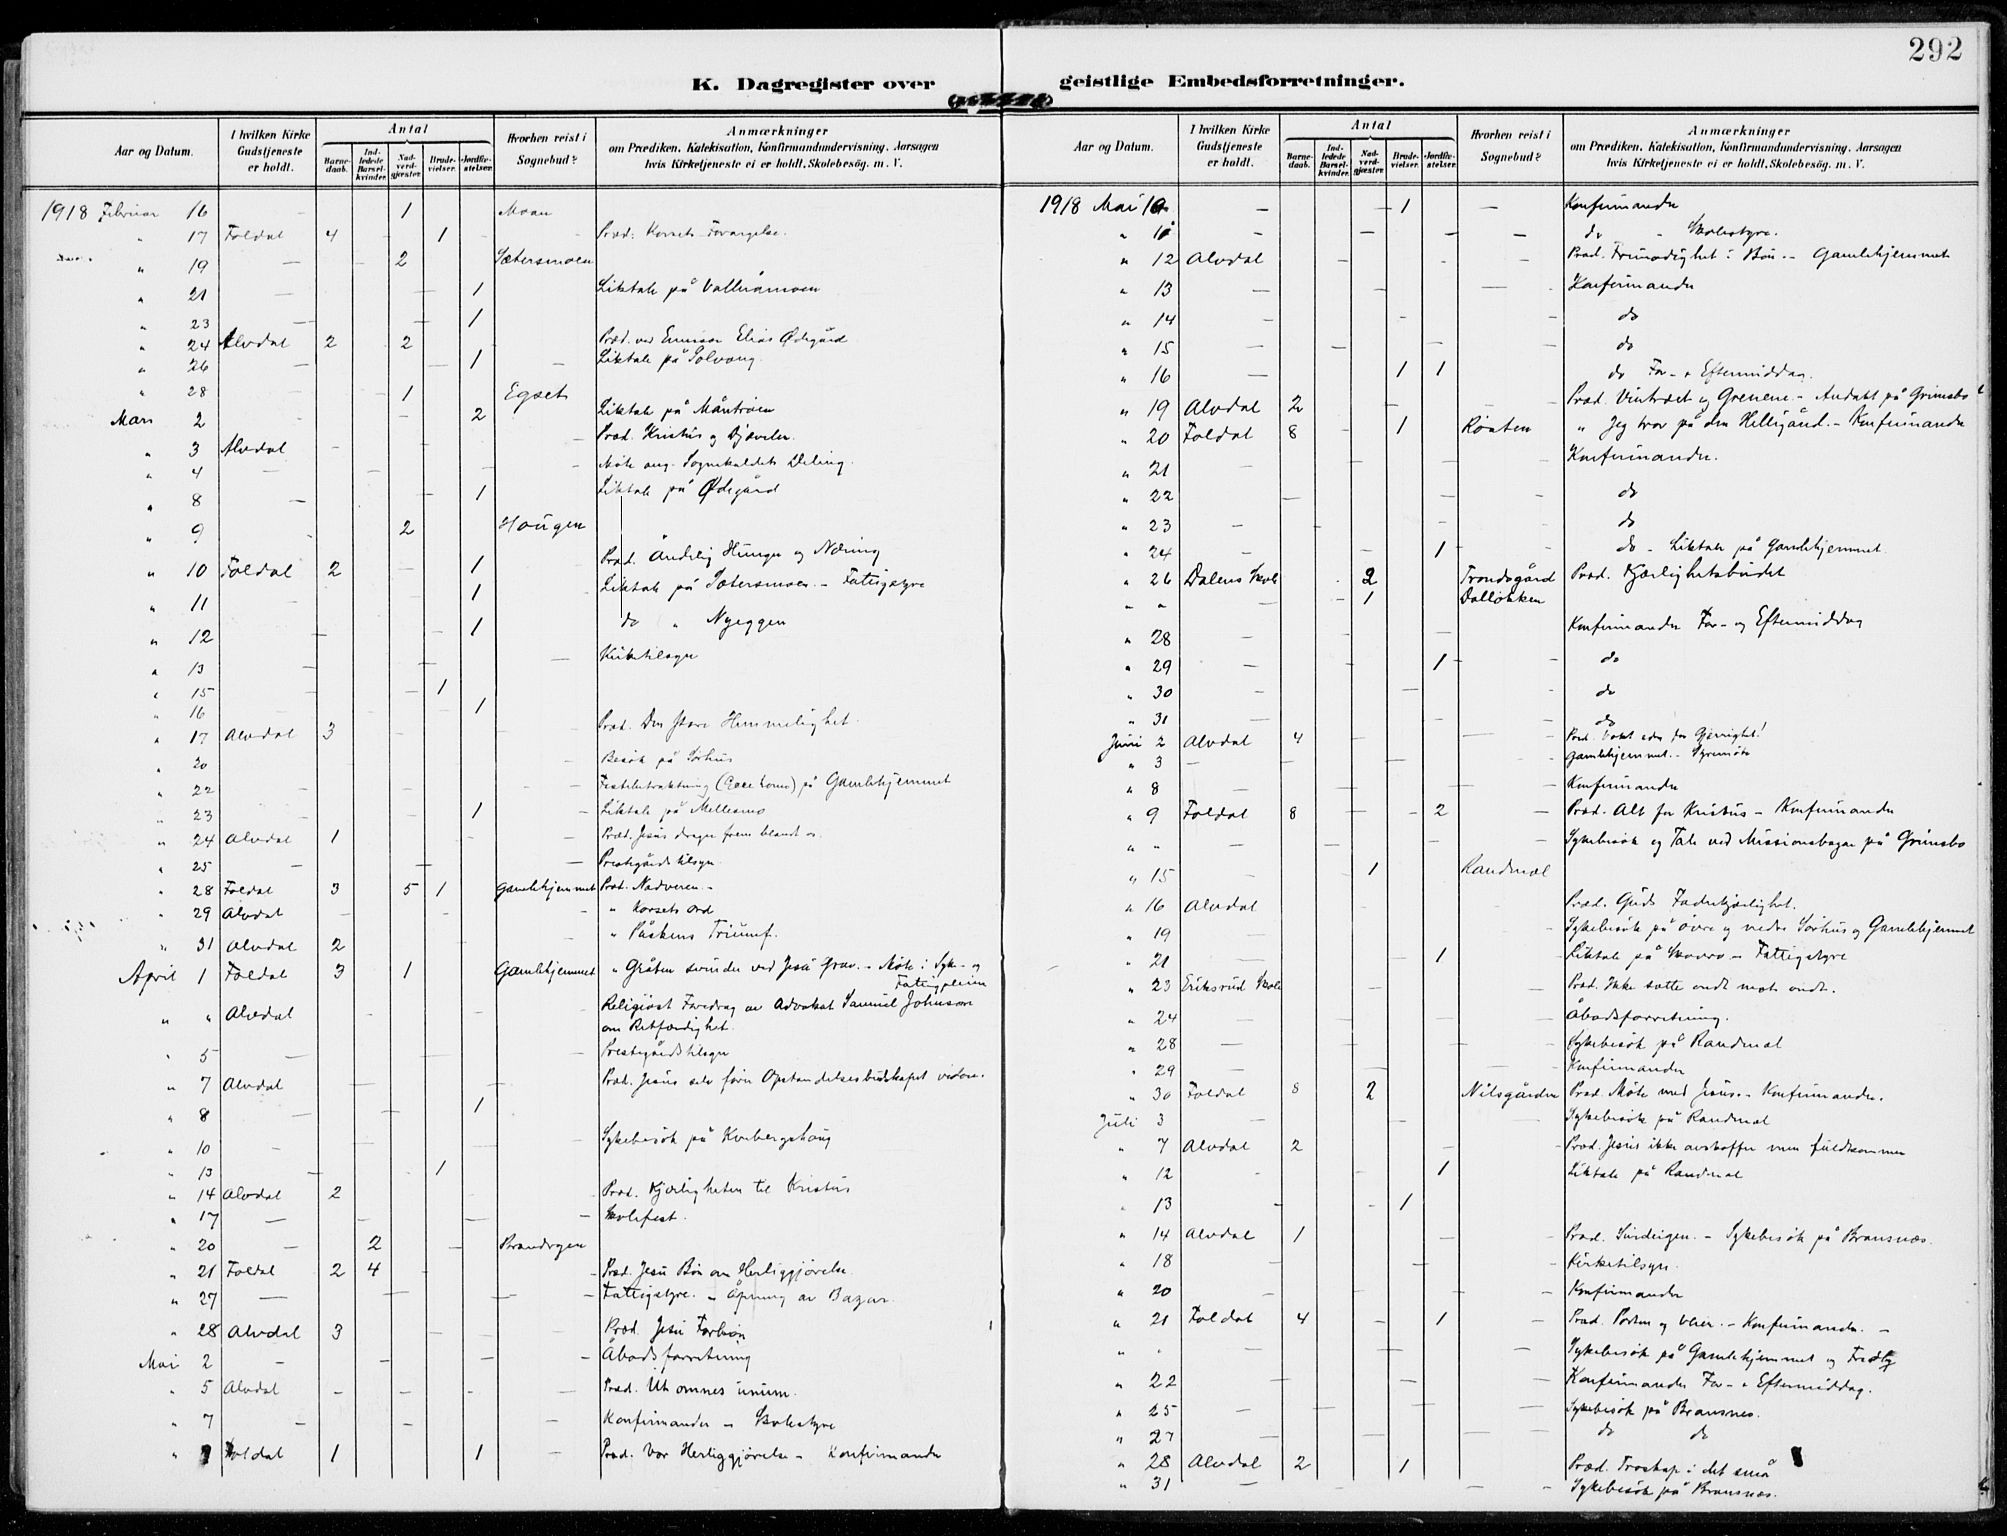 292
K. Dagregister over geistlige Embedsforretninger.
Aar og Datum. I hvilken Kirke Gudstjeneste er holdt. Antal Barnedaab. Indledede Barselkvinder. Nadverdgjæster. Brudevielser. Jordfæstelser. Hvorhen reist i Sognebud? Anmærkninger om Prædiken, Katekisation, Konfirmandundervisning, Aarsagen hvis Kirketjeneste ei er holdt, Skolebesøg. m. V.
1918 Februar 16 — 1 Moan
" 17 Foldal 4 - 1 Præd: Korsets Forargelse.
" 19 — 2 Sætersmoen
" 21 — 1 Liktale på
" 23 — 1
" 24 Alvdal 2 2 Præd. ved Emissær Elias Ødegård
" 26 — 1 Liktale på Solvang.
" 28 1 Egset
Mars 2 2 Liktale på Måntrøen
" 3 Alvdal Præd. Kristus og Djævelen.
" 4 — Møte ang. Sognekaldets Deling.
" 8 — 1 Liktale på Ødegård
" 9 2 Haugen
" 10 Foldal 2 1 Præd. Åndelig Hunger og Næring
" 11 1 Liktale på Sætersmoen. - Fattigstyre
" 12 — 1 do " Nyeggen
" 13 — Kirketilsyn
" 15 — 1
" 16 1
" 17 Alvdal 3 Præd. Den store Hemmelighet.
" 20 Besøk på Sørhus
" 22 (Ecce homo) på Gamlehjemmet
" 23 — 1 Liktale på Mellesmo
" 24 Alvdal 1 Præd. Jesus drager frem blandt os.
" 25 — Prestegårdstilsyn.
" 28 Foldal 3 5 1 Gamlehjemmet Præd. Nadveren. -
" 29 Alvdal - " Korsets Ord
" 31 Alvdal 2 " Påskens Triumf.
April 1 Foldal 3 1 Gamlehjemmet " Gråten svinder ved Jesu Grav. - Møte i Syke- og
Fattigpleien
" " Alvdal Religiøst Foredrag av Advokat Samuel Johnson
om Retfærdighet.
" 5 — Prestegårdstilsyn
" 7 Alvdal Præd. Jesus selv fører Opstandelsesbudskapet videre.
" 8 — 1
" 10 - Sykebesøk på Kvebergshaug
" 13 — 1
" 14 Alvdal 2 Præd. Kjærligheten til Kristus
" 17 — Skolefest.
" 20 — 2
" 21 Foldal 2 4 Præd. Jesu Bøn om Herliggjørelse.
" 27 — Fattigstyre. - Åpning av Bazar.
" 28 Alvdal 3 Præd. Jesu Forbøn
Mai 2 - Åbodsforretning
" 5 Alvdal - Præd. Ut omnes unum.
" 7 - Konfirmander - Skolestyre
" Foldal 1 1 - Præd. Vor Herliggjørelse - Konfirmander
Aar og Datum. I hvilken Kirke Gudstjeneste er holdt. Antal Barnedaab. Indledede Barselkvinder. Nadverdgjæster. Brudevielser. Jordfæstelser. Hvorhen reist i Sognebud? Anmærkninger om Prædiken, Katekisation, Konfirmandundervisning, Aarsagen hvis Kirketjeneste ei er holdt, Skolebesøg. m. V.
1918 Mai — 1 — Konfirmander
" — do - Skolestyre.
" 12 Alvdal Præd. Frimodighet i Bøn. - Gamlehjemmet
" 13 — Konfirmander
" 14 — do
" 15 do
" 16 — 1 1 do For- & Eftermiddag.
" 19 Alvdal 2 Præd. Vintræet og Grenene. - Andakt på Grimsbo
" 20 Foldal 8 - 1 " Jeg tror på den Helligånd. - Konfirmander
" 21 — Konfirmander.
" 22 — do
" 23 — do
" 24 — 1 do - Liktale på Gamlehjemmet.
" 26 Dalens Skole 2 Trondsgård Præd. Kjærlighetsbudet
" " — 1 Dalløkken
" 28 — Konfirmander For- og Eftermiddag
" 29 — 1 do
" 30 — do
" 31 do
Juni 2 Alvdal 4 Præd. Vokt eder for Gjerrighet!
" 3 — Gamlehjemmet. -
" 8 — Konfirmander
" 9 Foldal 8 - 2 — Præd. Alt for Kristus - Konfirmander
" " Sykebesøk og Tale ved Missionsbazar på Grimsbo
" 15 — 1 Randmæl
" 16 Alvdal Præd. Guds Faderkjærlighet.
" 19 — Sykebesøk på øvre og nedre Sørhus og Gamlehjemmet
" 21 — 1 Liktale på - Fattigstyre
" 23 Eriksrud Skole Præd. Ikke sætte ondt mot ondt.
" 24 — Åbodsforretning.
" 28 — Sykebesøk på Randmæl
" 29 — Konfirmander
" 30 Foldal 8 2 Nilsgården Præd. Møte med Jesus. - Konfirmander.
Juli 3 — Sykebesøk på Randmæl
" 7 Alvdal 2 Præd. Jesus ikke avskaffer men fuldkommer
" 12 — 1 Liktale på Randmæl
" 13 - 1
" 14 Alvdal 1 Præd. - Sykebesøk på Bransnæs.
" 18 — Kirketilsyn.
" 20 Konfirmander
" 21 Foldal 4 - 1 Præd. Porten og Veier. - Konfirmander. -
" " Sykebesøk på Gamlehjemmet og
" 22 — Konfirmander For- & Eftermiddag.
" 25 — Sykebesøk på Bransnes.
" 27 — do do
" 28 Alvdal 2 1 Præd. Troskap i det små
" 31 — Sykebesøk på Bransnæs.